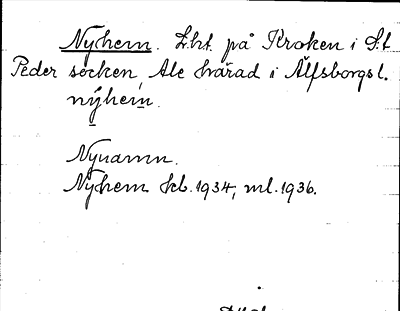 Nyhem. Lht. på Kroken i S:t
Peder socken, Ale härad i Älfsborgs l.
nýhem
Nynamn.
Nyhem kb. 1934, ml. 1936.